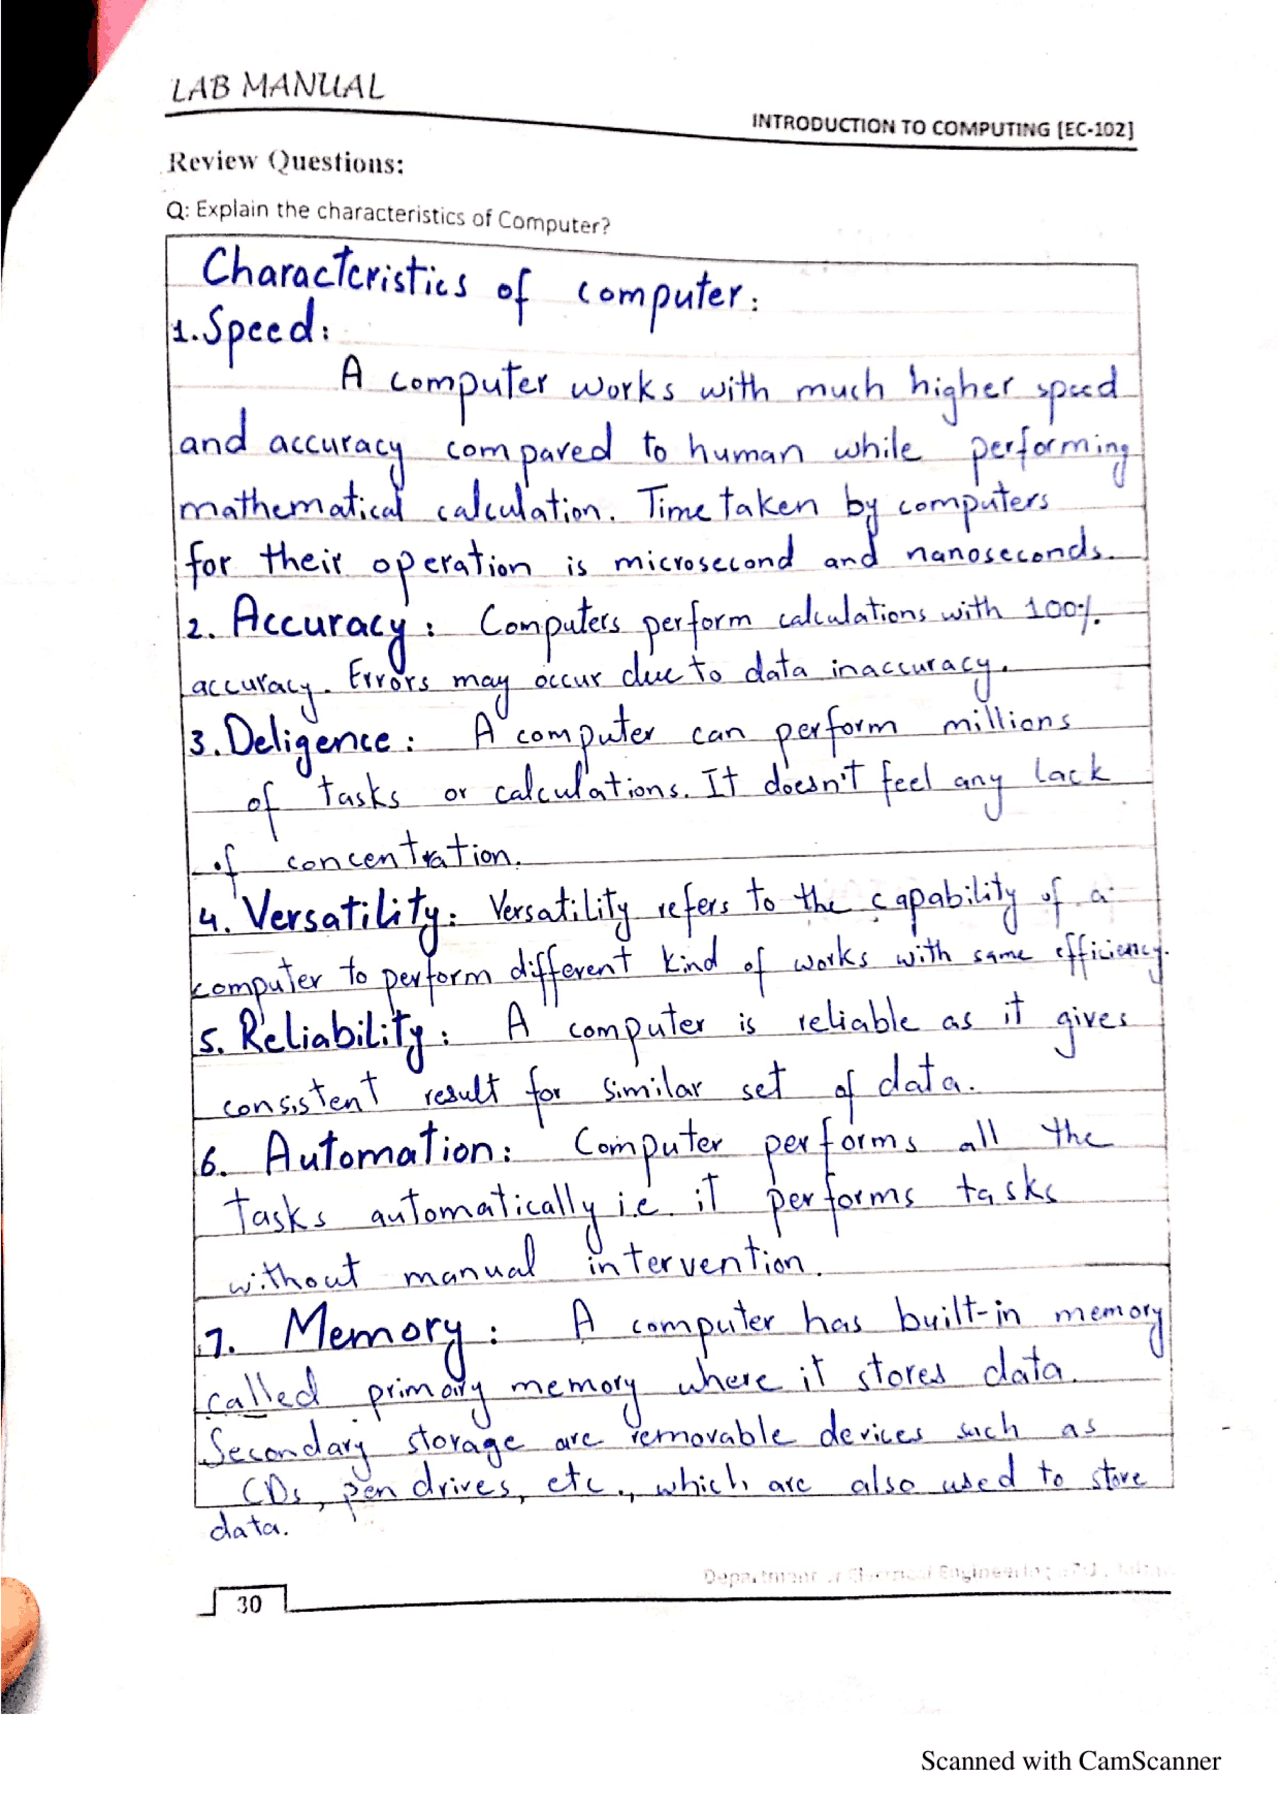 LAB MANUAL
INTRODUCTION TO COMPUTING [EC-102]
Review Questions:
Q: Explain the characteristics of Computer?
Characteristics of computer:
1. Speed:
A computer works with much higher speed
and accuracy compared to human while performing
mathematical calculation. Time taken by computers
for their operation is microsecond and nanoseconds.
2. Accuracy: Computers perform calculations with 100%
accuracy. Errors may occur due to data inaccuracy.
3. Deligence: A computer can perform millions
of tasks or calculations. It doesn't feel any lack
of concentration.
4. Versatility: Versatility refers to the capability of a
computer to perform different kind of works with same efficiency.
5. Reliability: A computer is reliable as it gives
consistent result for similar set of data.
6. Automation: Computer performs all the
tasks automatically i.e. it performs tasks
without manual intervention.
7. Memory: A computer has built-in memory
called primary memory where it stores data.
Secondary storage are removable devices such as
CDs, pen drives, etc., which are also used to store
data.
Department of Electrical Engineering
30
Scanned with CamScanner